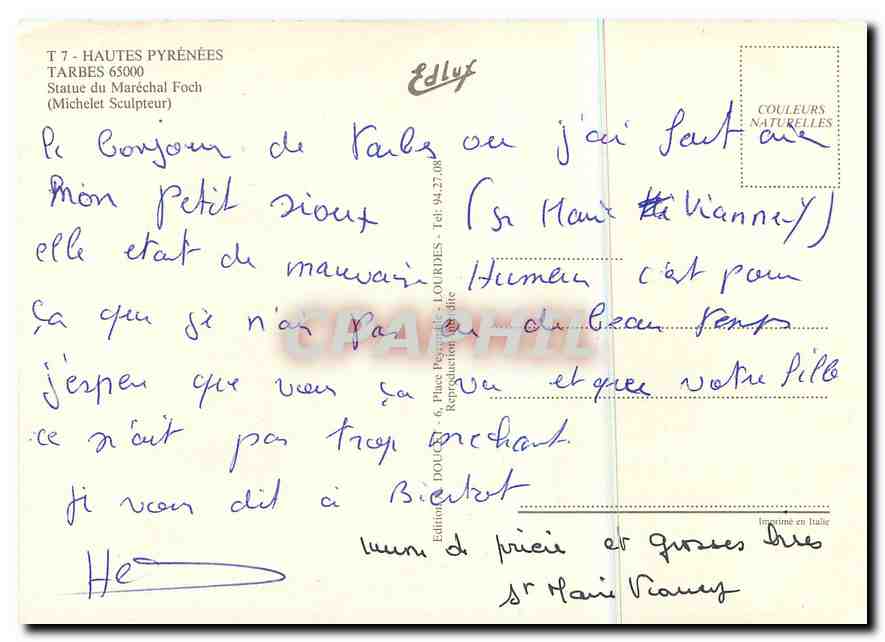 T 7 - HAUTES PYRÉNÉES
TARBES 65000
Statue du Maréchal Foch
(Michelet Sculpteur)
Edlux
COULEURS
NATURELLES
le bonjour de Tarbes ou j'ai fait
Mon petit sioux (sr Marie Vianney)
elle etait de mauvaise Humeur c'est pour
ça que je n'ai pas eu du beau temps
j'espere que vous ça va et que votre fille
ce n'ait pas trop mechant.
Je vous dit à Bientot
union de prière et grosses bises
sr Marie Vianney
Imprimé en Italie
Editions DOUCET - 6, Place Peyramale - LOURDES - Tél: 94.27.08
Reproduction interdite
CPAPHIL